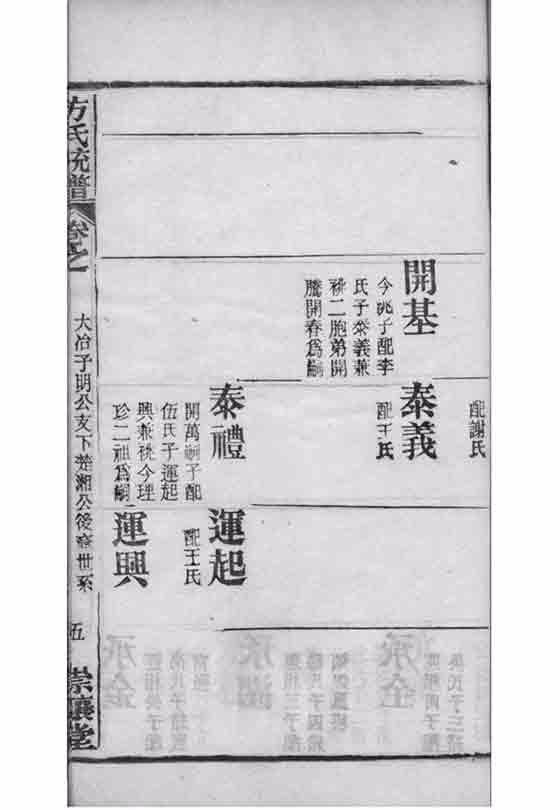 配謝氏
開基
今兆子配李
氏子泰義兼
祧二胞弟開
騰開春爲嗣
泰義
配王氏
泰禮
開萬嗣子配
伍氏子運起
興兼祧今理
珍二祖爲嗣
運起
配王氏
運興
方氏統譜
卷之
大冶子明公支下楚湘公後裔世系
五
崇讓堂